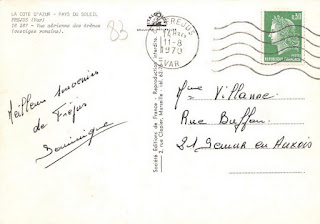 LA COTE D'AZUR - PAYS DU SOLEIL
FREJUS (Var)
19 287 - Vue aérienne des Arènes
(vestiges romains).
83
FREJUS
11-8
1970
VAR
0,30
Meilleurs souvenirs
de Fréjus
Dominique
Société Editions de France - Reproduction interdite
2, rue Clapier, Marseille - Tél.
Mme Villanac
Rue Buffon
21 Semur en Auxois